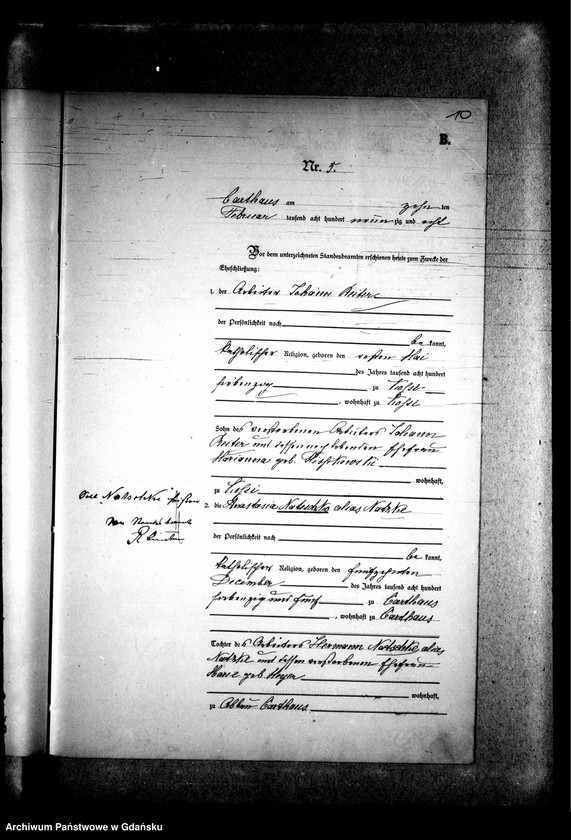 10
B.
Nr. 5.
Carthaus am zehn ten
Februar tausend acht hundert neun zig und acht
Vor dem unterzeichneten Standesbeamten erschienen heute zum Zwecke der
Eheschließung:
1. der Arbeiter Johann Reiter
der Persönlichkeit nach
be kannt,
katholischer Religion, geboren den ersten Mai
des Jahres tausend acht hundert
siebenzig zu
, wohnhaft zu
Sohn des verstorbenen Arbeiters Johann
Reiter und dessen noch lebenden Ehefrau
Marianna geb.
wohnhaft,
zu
2. die Anastasia Natschke alias Natzke
der Persönlichkeit nach
be kannt,
katholischer Religion, geboren den fünfzehnten
December des Jahres tausend acht hundert
siebenzig und fünf zu Carthaus
, wohnhaft zu Carthaus
Tochter des Arbeiters Hermann Natschke alias
Natzke und dessen verstorbenen Ehefrau
geb. Meyer
wohnhaft,
zu Abbau Carthaus.
Der Standesbeamte
Archiwum Państwowe w Gdańsku